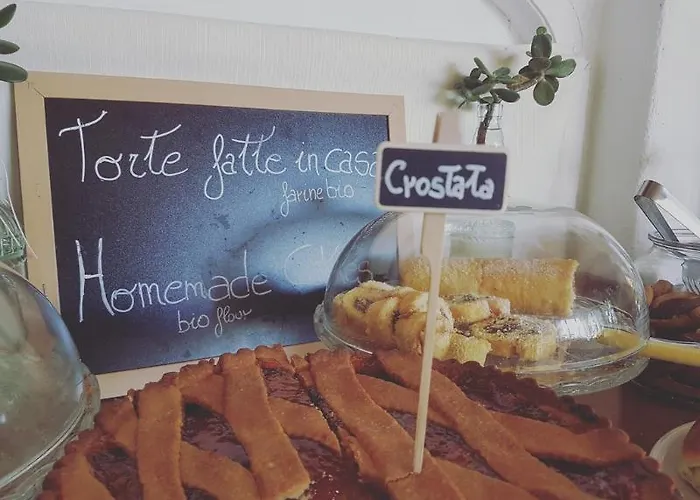 Torte fatte in casa
farine bio
Crostata
Homemade Cakes
bio flour